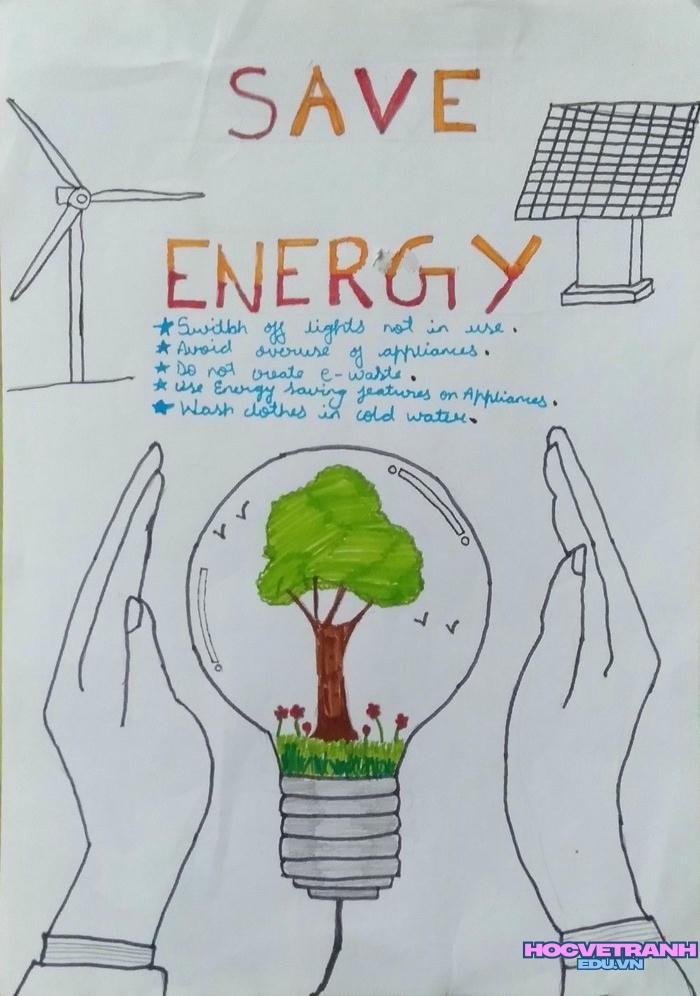 SAVE
ENERGY
★ Switbh off lights not in use.
★ Avoid overuse of appliances.
★ Do not create e-waste.
★ Use Energy saving features on Appliances.
★ Wash clothes in cold water.
HOCVETRANH
EDU.VN